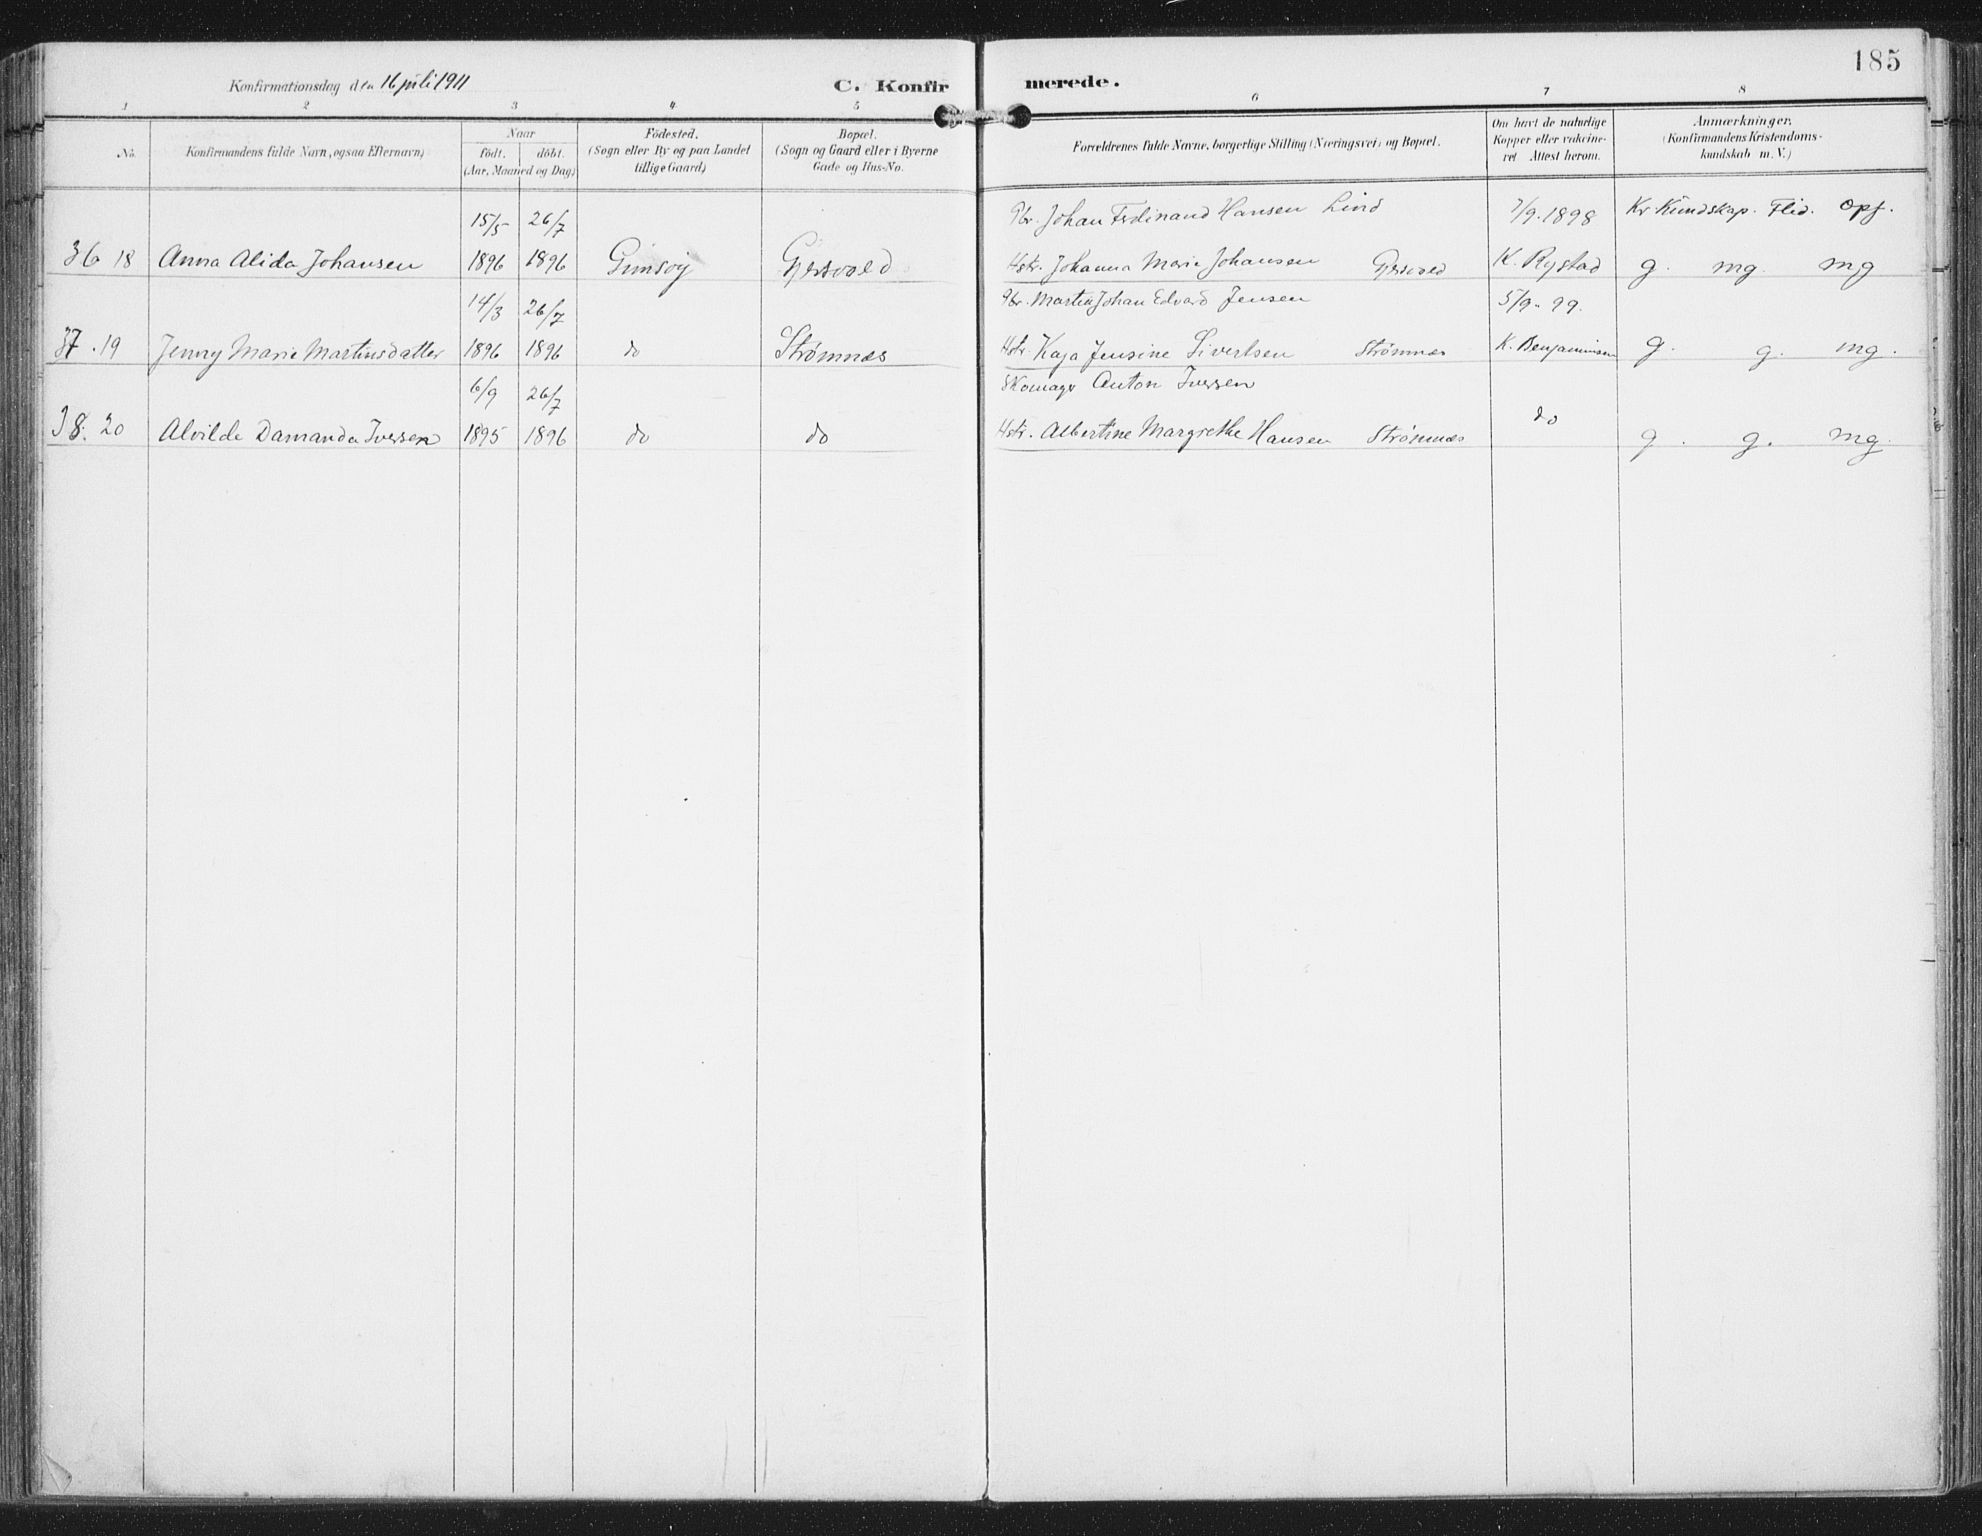 185
Konfirmationsdag den 16 juli 1911 C. Konfirmerede.
1 2 3 4 5 6 7 8
No. Konfirmandens fulde Navn, ogsaa Efternavn) Naar født. døbt. (Aar, Maaned og Dag) Fødested. (Sogn eller By og paa Landet tillige Gaard) Bopæl. (Sogn og Gaard eller i Byerne Gade og Hus-No. Forældrenes fulde Navne, borgerlige Stilling (Næringsvei) og Bopæl. Om havt de naturlige Kopper eller vakcineret Attest herom. Anmærkninger. (Konfirmandens Kristendomskundskab m. V.)
15/5 26/7 Gbr. Johan Ferdinand Hansen Lind 7/9. 1898 Kr Kundskap. Flid. Opf.
36 18 Anna Alida Johansen 1896 1896 Gimsøy Gjersvold Hstr. Johanna Marie Johansen Gjersvold K. Rystad g. mg. mg
14/3 26/7 Gbr. Martin Johan Edvard Jensen 5/9. 99.
37. 19 Jenny Marie Martinsdatter 1896 1896 do Strømnæs Hstr. Kaja Jensine Sivertsen Strømnæs K. Benjaminsen g. g. mg.
6/9 26/7 Skomager Anton Iversen
38. 20 Alvilde Damanda Iversen 1895 1896 do do Hstr. Albertine Margrethe Hansen Strømnæs do g. g. mg.